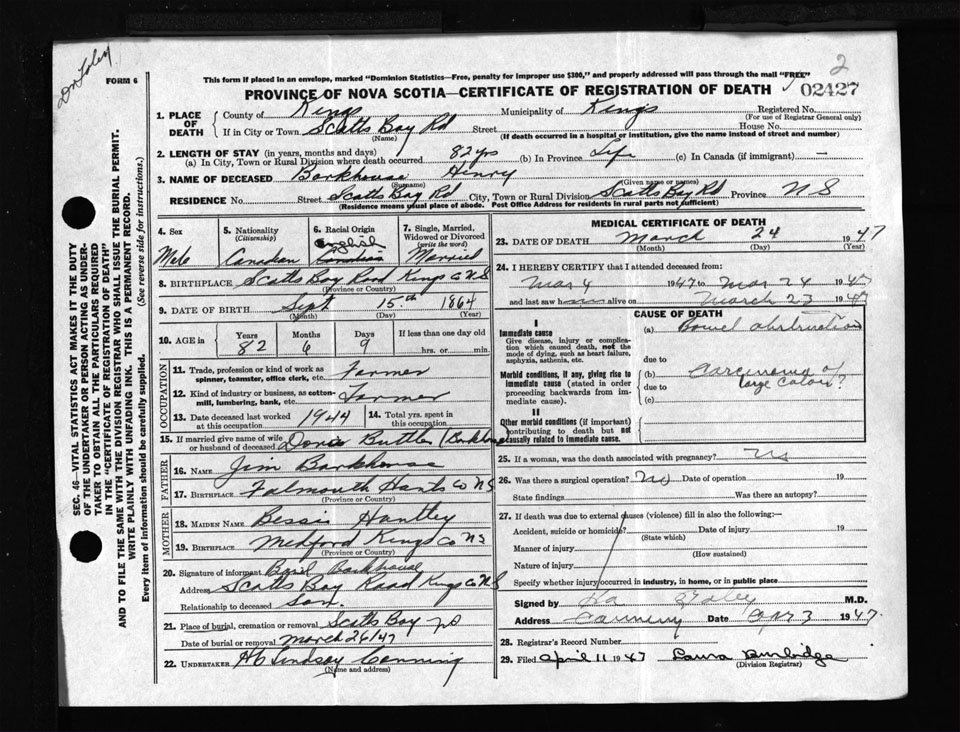 2
Dr Foley
FORM 6
This form if placed in an envelope, marked "Dominion Statistics—Free, penalty for improper use $300," and properly addressed will pass through the mail "FREE"
PROVINCE OF NOVA SCOTIA—CERTIFICATE OF REGISTRATION OF DEATH
02427
SEC. 46—VITAL STATISTICS ACT MAKES IT THE DUTY
OF THE UNDERTAKER OR PERSON ACTING AS UNDER-
TAKER TO OBTAIN ALL THE PARTICULARS REQUIRED
IN THE "CERTIFICATE OF REGISTRATION OF DEATH"
AND TO FILE THE SAME WITH THE DIVISION REGISTRAR WHO SHALL ISSUE THE BURIAL PERMIT.
WRITE PLAINLY WITH UNFADING INK. THIS IS A PERMANENT RECORD.
Every item of information should be carefully supplied. (See reverse side for instructions.)
1. PLACE OF DEATH
County of Kings Municipality of Kings Registered No.
(For use of Registrar General only)
If in City or Town Scotts Bay Rd Street House No.
(Name) (If death occurred in a hospital or institution, give the name instead of street and number)
2. LENGTH OF STAY (in years, months and days)
(a) In City, Town or Rural Division where death occurred 82 yrs (b) In Province Life (c) In Canada (if immigrant) —
3. NAME OF DECEASED Barkhouse Henry
(Surname) (Given name or names)
RESIDENCE No. Street Scotts Bay Rd City, Town or Rural Division Scotts Bay Rd Province N S
(Residence means usual place of abode. Post Office Address for residents in rural parts not sufficient)
4. Sex 5. Nationality (Citizenship) 6. Racial Origin 7. Single, Married, Widowed or Divorced (write the word)
English
Male Canadian Canadian Married
8. BIRTHPLACE Scotts Bay Road Kings Co N S
(Province or Country)
9. DATE OF BIRTH Sept 15th 1864
(Month) (Day) (Year)
10. AGE in Years Months Days If less than one day old
82 6 9 hrs. or min.
OCCUPATION
11. Trade, profession or kind of work as spinner, teamster, office clerk, etc. Farmer
12. Kind of industry or business, as cotton-mill, lumbering, bank, etc. Farmer
13. Date deceased last worked at this occupation 1944 14. Total yrs. spent in this occupation
15. If married give name of wife or husband of deceased Butler (Barkhouse)
FATHER
16. NAME Jim Barkhouse
17. BIRTHPLACE Falmouth Hants Co N S
(Province or Country)
MOTHER
18. MAIDEN NAME Bessie Huntley
19. BIRTHPLACE Medford Kings Co N S
(Province or Country)
20. Signature of informant Basil Barkhouse
Address Scotts Bay Road Kings Co N S
Relationship to deceased Son.
21. Place of burial, cremation or removal Scotts Bay
Date of burial or removal March 26/47
22. UNDERTAKER Lindsay Canning
(Name and address)
MEDICAL CERTIFICATE OF DEATH
23. DATE OF DEATH March 24 1947
(Month) (Day) (Year)
24. I HEREBY CERTIFY that I attended deceased from:
Mar 4 1947 to Mar 24 1947
and last saw him alive on March 23 1947
CAUSE OF DEATH
I
Immediate cause
Give disease, injury or complication which caused death, not the mode of dying, such as heart failure, asphyxia, asthenia, etc.
(a) Bowel obstruction
due to
Morbid conditions, if any, giving rise to immediate cause (stated in order proceeding backwards from immediate cause).
(b) Carcinoma of
due to large colon?
(c)
II
Other morbid conditions (if important) contributing to death but not causally related to immediate cause.
25. If a woman, was the death associated with pregnancy? No
26. Was there a surgical operation? No Date of operation 19
State findings Was there an autopsy?
27. If death was due to external causes (violence) fill in also the following:—
Accident, suicide or homicide? Date of injury 19
(State which)
Manner of injury
(How sustained)
Nature of injury
Specify whether injury occurred in industry, in home, or in public place
Signed by Foley M.D.
Address Canning Date Apr 3 1947
28. Registrar's Record Number
29. Filed April 11 1947 Laura Burbidge
(Division Registrar)